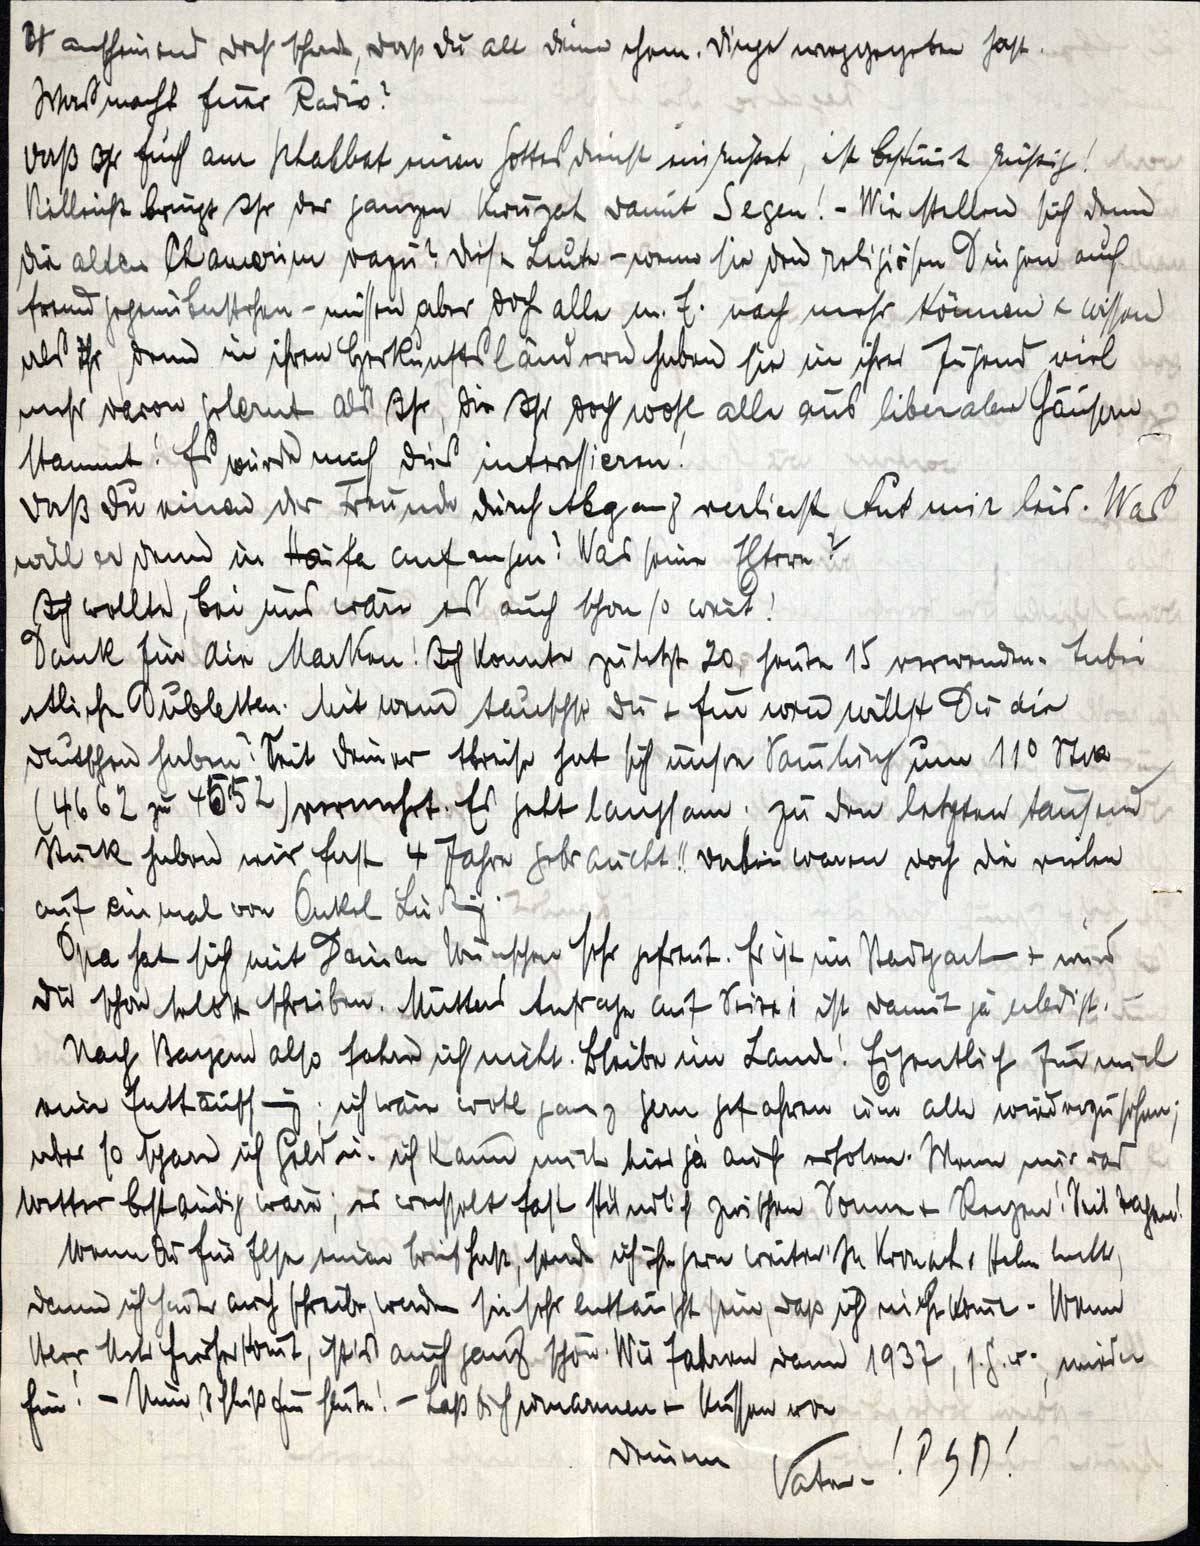 Ist anscheinend doch schade, daß Du all Deine chem. Dinge weggegeben hast.
Was macht Euer Radio?
Daß Ihr Euch am Schabbat einen Gottesdienst einrichtet, ist bestimmt richtig!
Vielleicht bringt Ihr der ganzen Kwuzah damit Segen! - Wie stellen sich denn
die alten Chawerim dazu? Diese Leute - wenn sie den religiösen Dingen auch
fremd gegenüberstehen - müssen aber doch alle m. E. noch mehr können + wissen
als Ihr, denn in ihren Herkunftsländern haben sie in ihrer Jugend viel
mehr davon gelernt als Ihr, die Ihr doch wohl alle aus liberalen Häusern
stammt! Es würde mich dies interessieren!
Daß Du einen der Freunde durch Abgang verlierst tut mir leid. Was
will er denn in Haifa anfangen? Was seine Eltern?
Ich wollte, bei uns wäre es auch schon so weit!
Dank für die Marken! Ich konnte zuletzt 20, heute 15 verwenden. Dabei
etliche Dubletten. Mit wem tauschst Du + für wen willst Du die
deutschen haben? Seit Deiner Abreise hat sich unsre Sammlung um 110 Stck
(4662 zu 4552) vermehrt. Es geht langsam. Zu den letzten tausend
Stück haben wir fast 4 Jahre gebraucht!! Dabei waren doch die vielen
auf einmal von Onkel Ludwig.
Opa hat sich mit Deinen Wünschen sehr gefreut. Er ist im Stadtpark + wird
Dir schon selbst schreiben. Mutters Anfrage auf Seite 1 ist damit ja erledigt.
Nach Bayern also fahre ich nicht. Bleibe im Lande! Eigentlich für mich
eine Enttäuschung; ich wäre wohl ganz gern gefahren um alle wiederzusehen;
aber so spare ich Geld u. ich kann mich hier ja auch erholen. Wenn nur das
Wetter beständig wäre; es wechselt fast stündlich zwischen Sonne + Regen! Seit Tagen!
Wenn Du für Ilse einen Brief hast, sende ich ihn gern weiter. In Kronach,
denen ich heute auch schreibe, werden sie sehr enttäuscht sein, daß ich nicht komme. Wenn
Herr früher kommt, ist's auch ganz schön. Wir fahren dann 1937, s. G. w., wieder
hin! - Nun Schluß für heute! - Laß Dich umarmen + küssen von
Deinem Vater. !